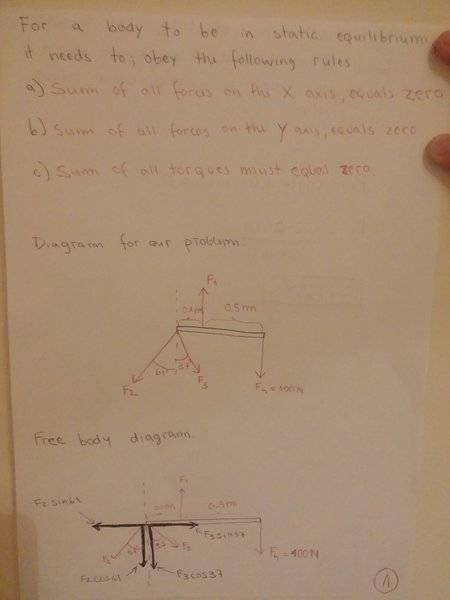 For a body to be in static equilibrium,
it needs to; obey the following rules
a) Sum of all focus on the X axis, equals zero
b) Sum of all forces on the Y axis, equals zero
c) Sum of all torques must equal zero.
Diagram for our problem.
F1
0.1m 0.5m
61 37
F2 F3 F4 = 400N
Free body diagram.
F1
F2 sin61 0.1m 0.5m
F3 sin37
F2 61 37 F3
F4 = 400N
F2 cos61 F3 cos37
1